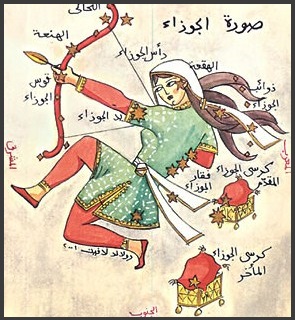 صورة الجوزاء
التحالي
الهنعة
رأس الجوزاء
الهقعة
ذوائب
الجوزاء
قوس
الجوزاء
يد الجوزاء
المشرق
المغرب
كرسى الجوزاء
المقدّم
فقار
الجوزاء
كرسى الجوزاء
المأخر
الجنوب